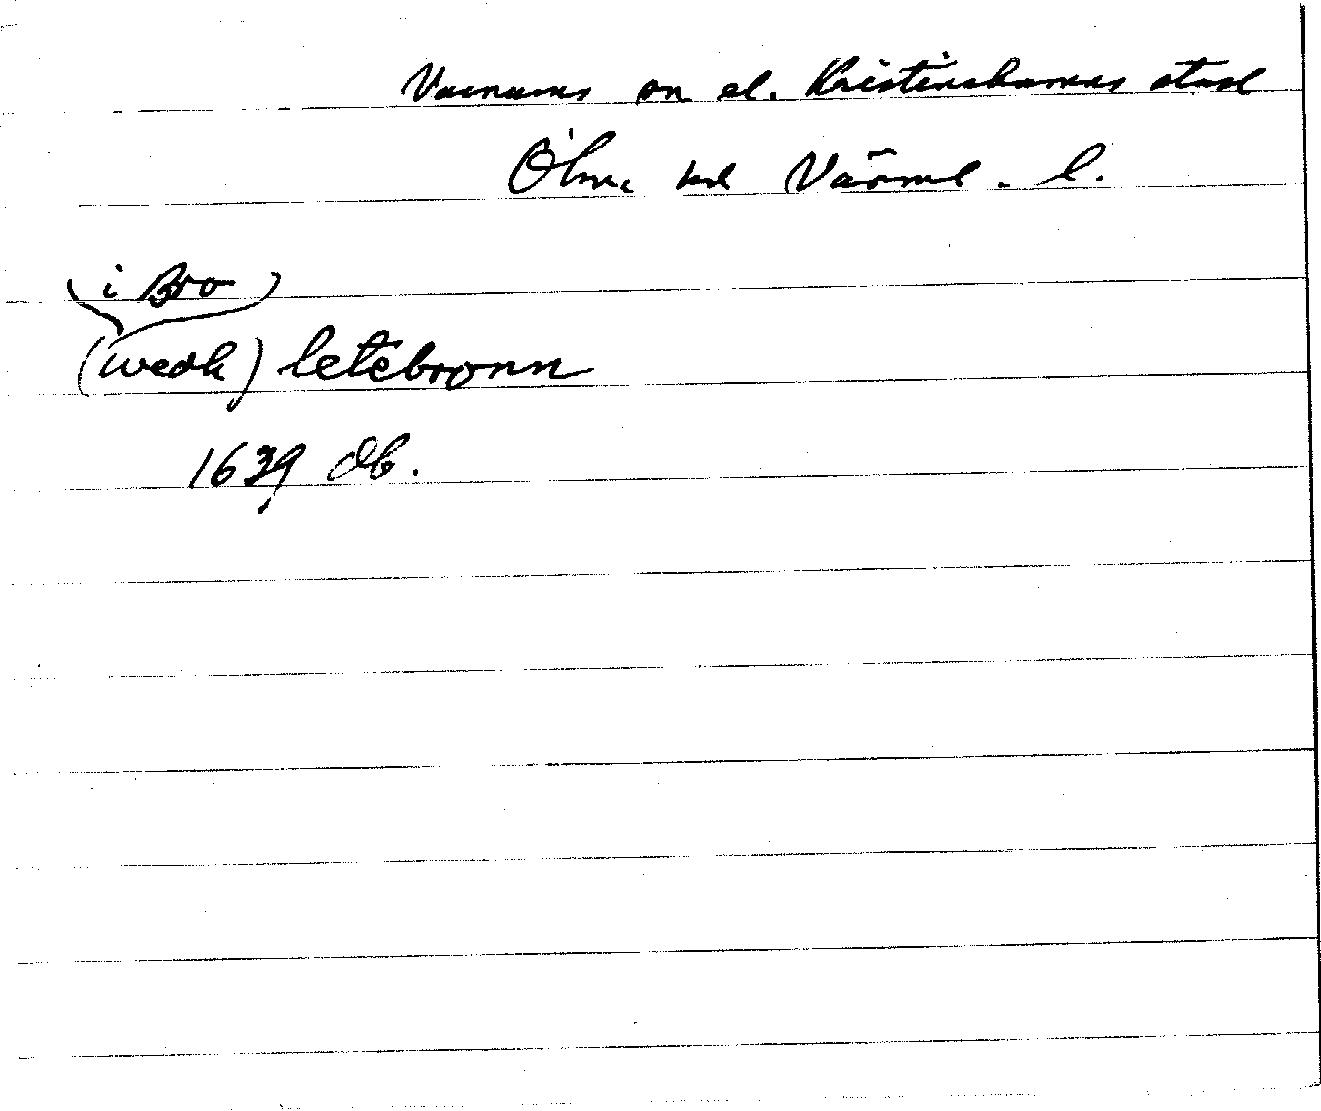 Varnums sn el. Kristinehamns stad
Ölme hd Värml. l.
(i Bro)
(wedh) letebronn
1639 db.